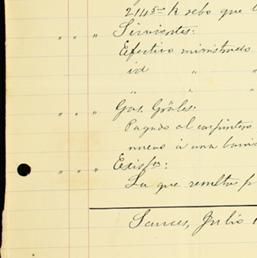 2145 k sebo que
" " " Sirvientes:
Efectivo ministrado
id " "
" "
" " " Gas. Gräles:
Pagado al carpintero
nuevo à una
" " " Exist/as:
La que resulta p
Sauces, Julio 1